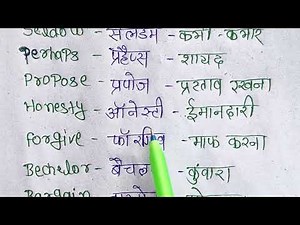 Seldom - सेलडम - कभी-कभार
Perhaps - प्रेहैप्स - शायद
Propose - प्रपोज - प्रस्ताव रखना
Honesty - ऑनेस्टी - ईमानदारी
Forgive - फॉरगिव - माफ करना
Bechelor - बैचल - कुंवारा
Bargain